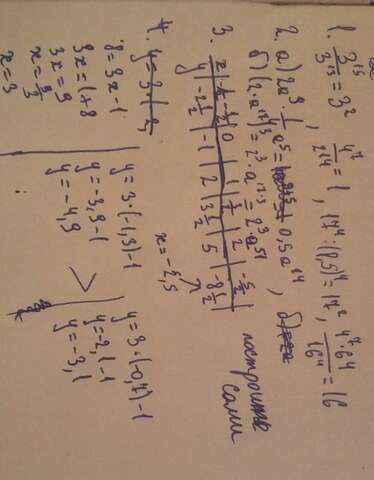 1. 3^15/3^13 = 3^2, 4^7/2^14 = 1, 17^4:(8,5)^4 = 17^2, 4^7·6^4/16^4 = 16
2. а) 2a^9 · 1/4 a^5 = 0,5a^14,
б) (2·a^17)^3 = 2^3·a^17·3 = 2^3a^51
3.
x | | -1/2 | 0 | 1 | | 2 | -5/2
y | -2 1/2 | -1 | 2 | 3 1/2 | 5 | -8 1/2
x = -2,5
построить сами
4.
8 = 3x - 1
3x = 1 + 8
3x = 9
x = 9/3
x = 3
y = 3·(-1,3) - 1
y = -3,9 - 1
y = -4,9
>
y = 3·(-0,7) - 1
y = -2,1 - 1
y = -3,1